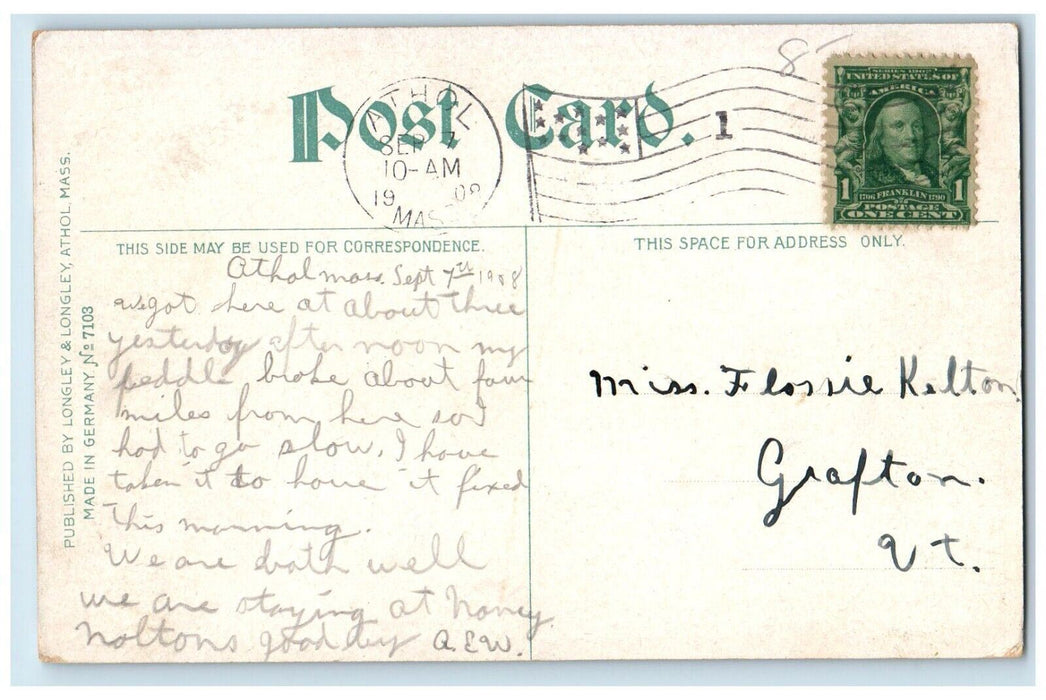 8-
Post Card.
ATHOL
SEP 7
10-AM
19 08
MASS
1
SERIES 1902
UNITED STATES OF
AMERICA
1 1706 FRANKLIN 1790 1
POSTAGE
ONE CENT
PUBLISHED BY LONGLEY & LONGLEY, ATHOL, MASS.
MADE IN GERMANY No 7103
THIS SIDE MAY BE USED FOR CORRESPONDENCE.
THIS SPACE FOR ADDRESS ONLY.
Athol mass. Sept 7th 1908
we got here at about three
yesterday after noon my
peddle broke about four
miles from here so I
had to go slow. I have
taken it to have it fixed
this morning.
We are both well
we are staying at Nancy
Noltons good by A.E.W.
Miss. Flossie Kelton.
Grafton.
Vt.